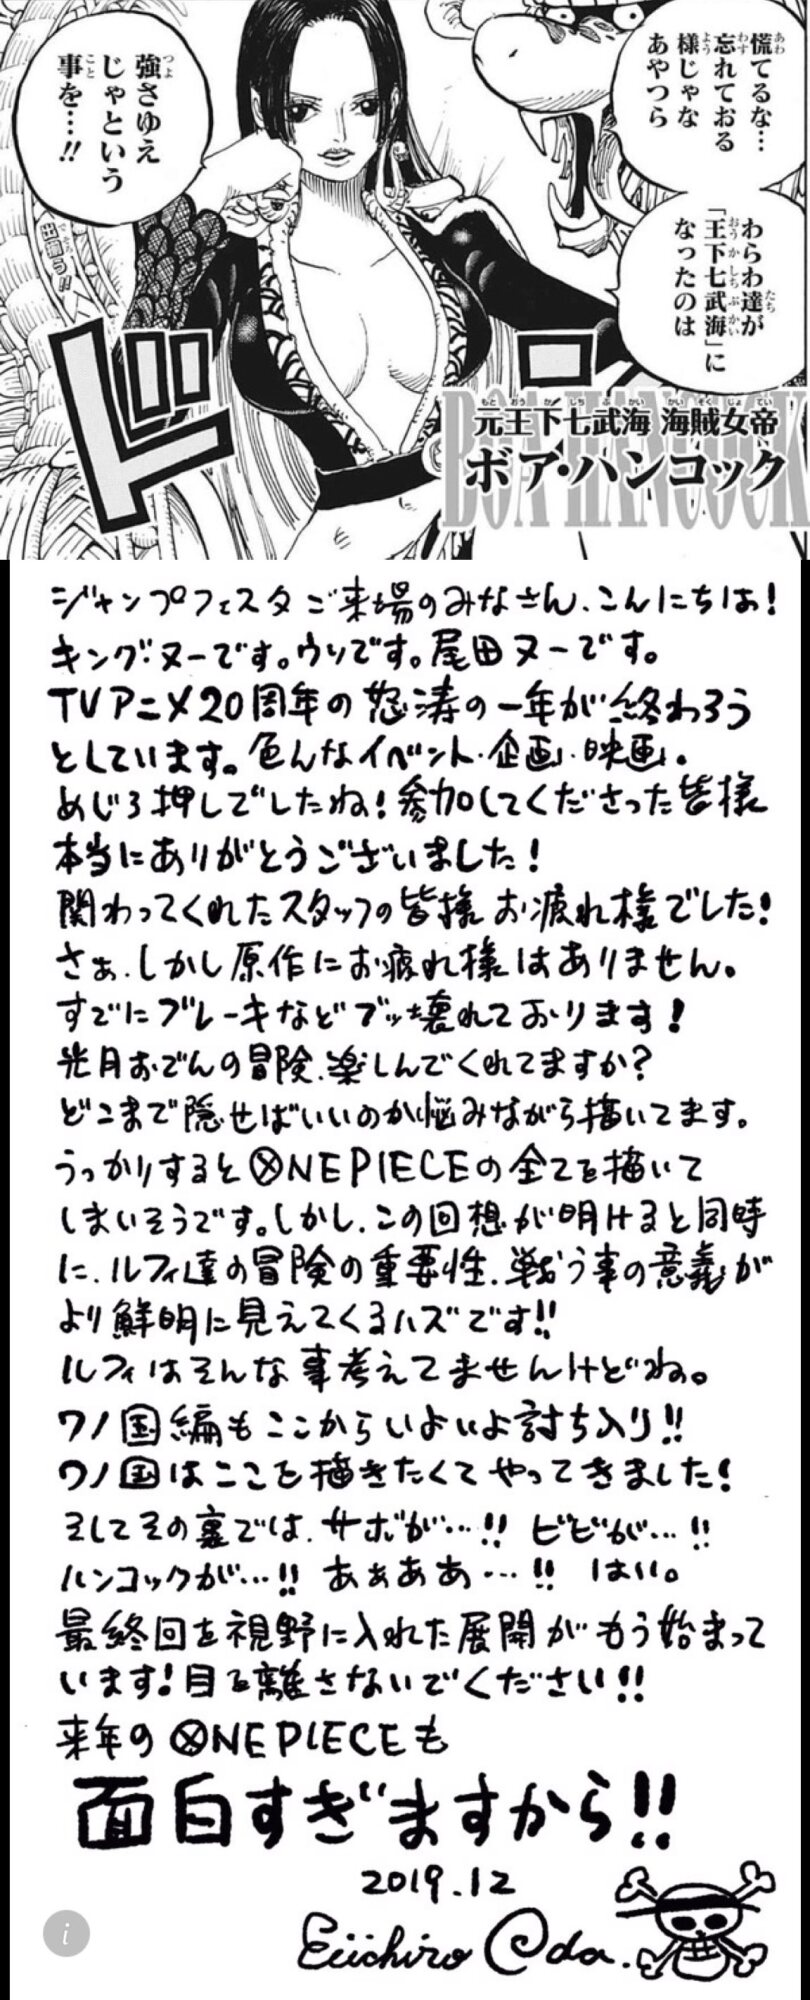 慌てるな…
忘れておる
様じゃな
あやつら
わらわ達が
「王下七武海」に
なったのは
強さゆえ
じゃという
事を…!!
出棚う!!
ドン
BOA HANCOCK
元王下七武海 海賊女帝
ボア・ハンコック
ジャンプフェスタご来場のみなさん、こんにちは!
キング・ヌーです。ウソです。尾田ヌーです。
TVアニメ20周年の怒涛の一年が終わろう
としています。色んなイベント・企画・映画。
めじろ押しでしたね!参加してくださった皆様
本当にありがとうございました!
関わってくれたスタッフの皆様お疲れ様でした!
さぁ、しかし原作にお疲れ様はありません。
すでにブレーキなどブッ壊れております!
光月おでんの冒険、楽しんでくれてますか?
どこまで隠せばいいのか悩みながら描いてます。
うっかりするとONEPIECEの全てを描いて
しまいそうです。しかし、この回想が明けると同時
に、ルフィ達の冒険の重要性、戦う事の意義が
より鮮明に見えてくるハズです!!
ルフィはそんな事考えてませんけどね。
ワノ国編もここからいよいよ討ち入り!!
ワノ国はここを描きたくてやってきました!
そしてその裏では、サボが…!! ビビが…!!
ハンコックが…!! あぁああ…!! はい。
最終回を視野に入れた展開がもう始まって
います!目を離さないでください!!
来年のONEPIECEも
面白すぎますから!!
2019.12
Eiichiro Oda.
i